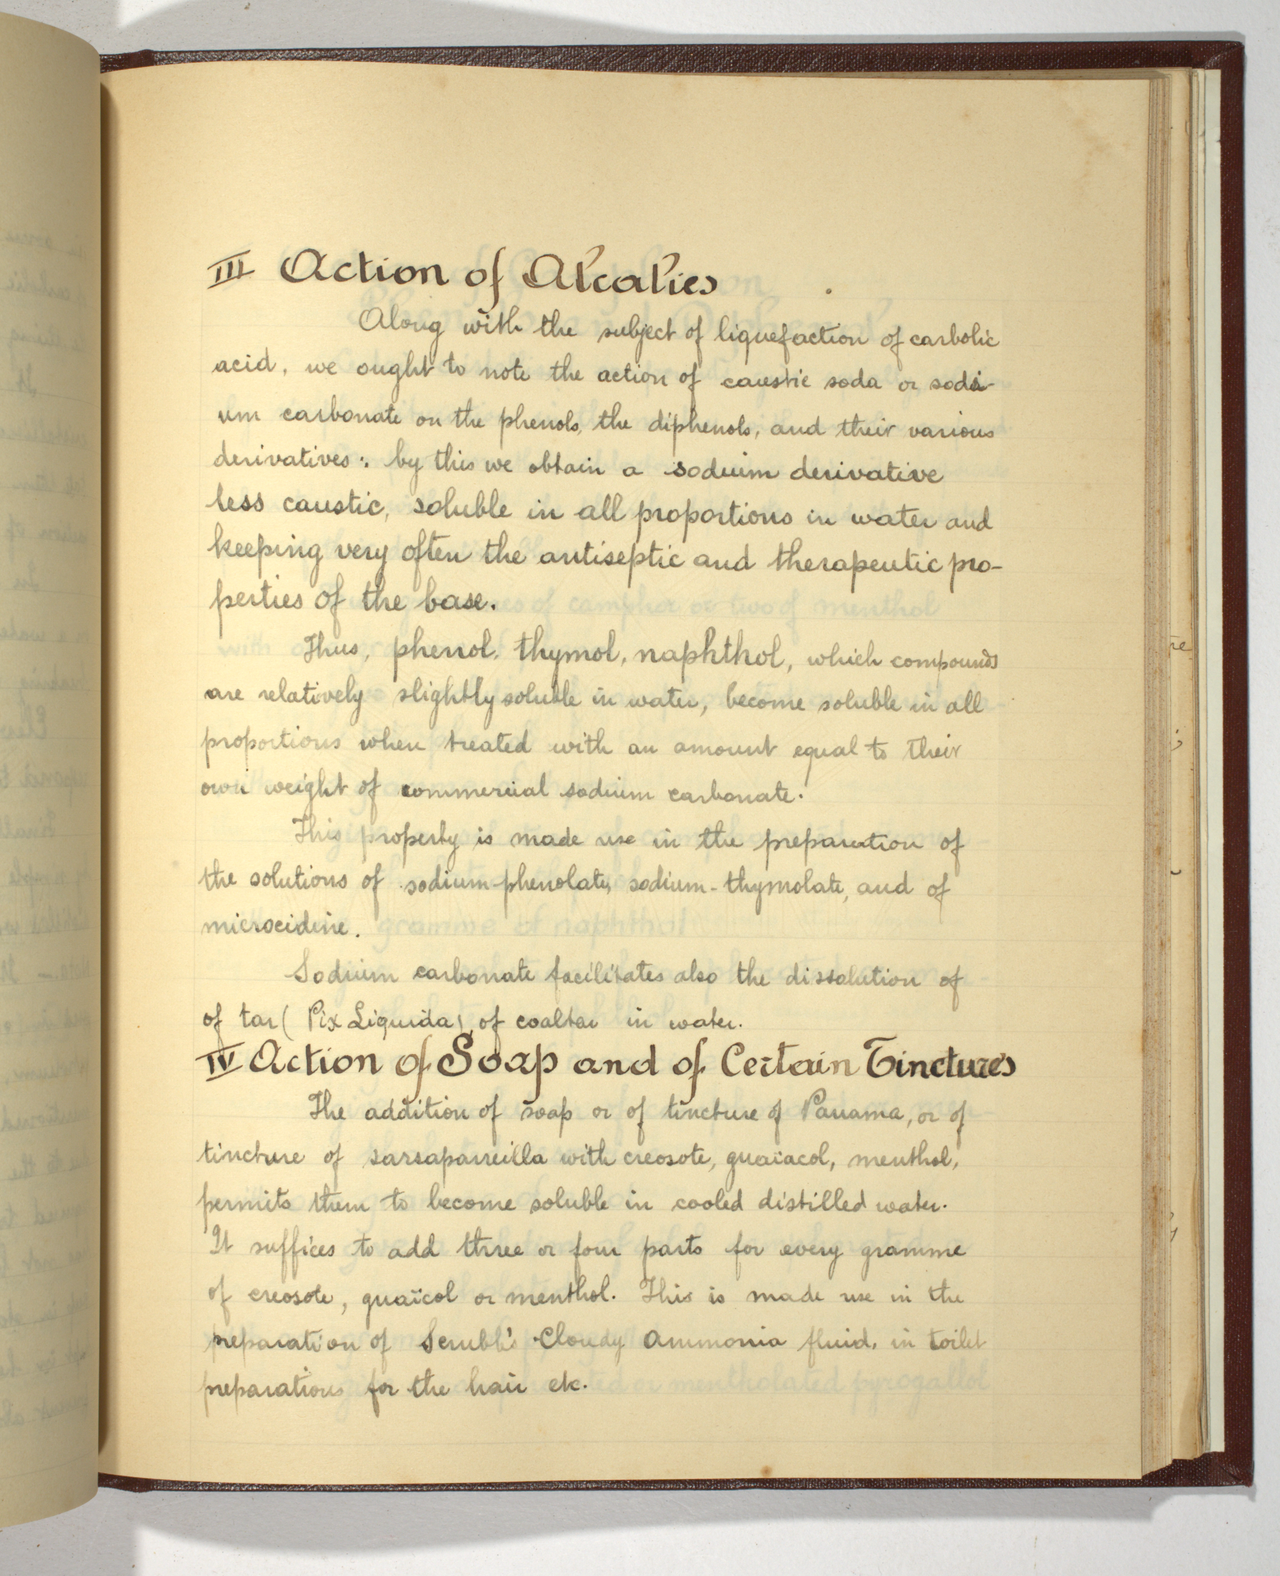 III Action of Alcalies
Along with the subject of liquefaction of carbolic
acid, we ought to note the action of caustic soda or sodi-
um carbonate on the phenols, the diphenols, and their various
derivatives: by this we obtain a sodium derivative
less caustic, soluble in all proportions in water and
keeping very often the antiseptic and therapeutic pro-
perties of the base.
Thus, phenol, thymol, naphthol, which compounds
are relatively slightly soluble in water, become soluble in all
proportions when treated with an amount equal to their
own weight of commercial sodium carbonate.
This property is made use in the preparation of
the solutions of sodium-phenolate, sodium-thymolate, and of
microcidine.
Sodium carbonate facilitates also the dissolution of
of tar (Pix Liquida), of coaltar in water.
IV Action of Soap and of Certain Tinctures
The addition of soap or of tincture of Panama, or of
tincture of sarsaparreilla with creosote, guaïacol, menthol,
permits them to become soluble in cooled distilled water.
It suffices to add three or four parts for every gramme
of creosote, guaïcol or menthol. This is made use in the
preparation of Scrubb's Cloudy Ammonia fluid, in toilet
preparations for the hair etc.